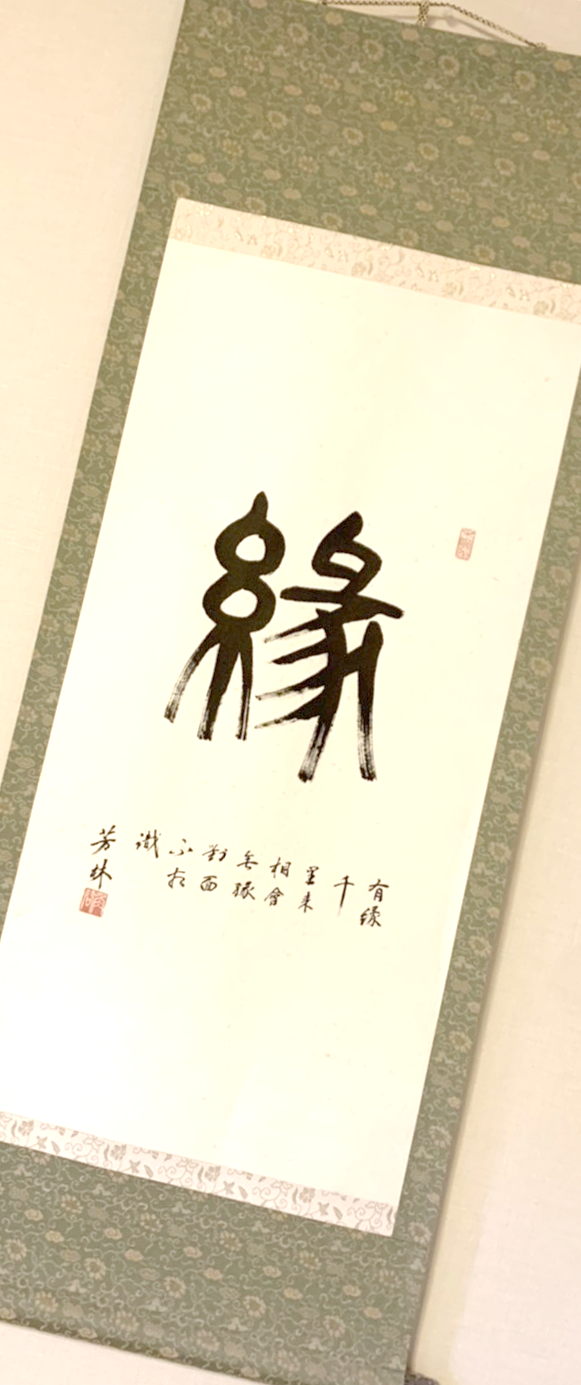 緣
有緣
千
里来
相會
無緣
對面
不相
識
芳林